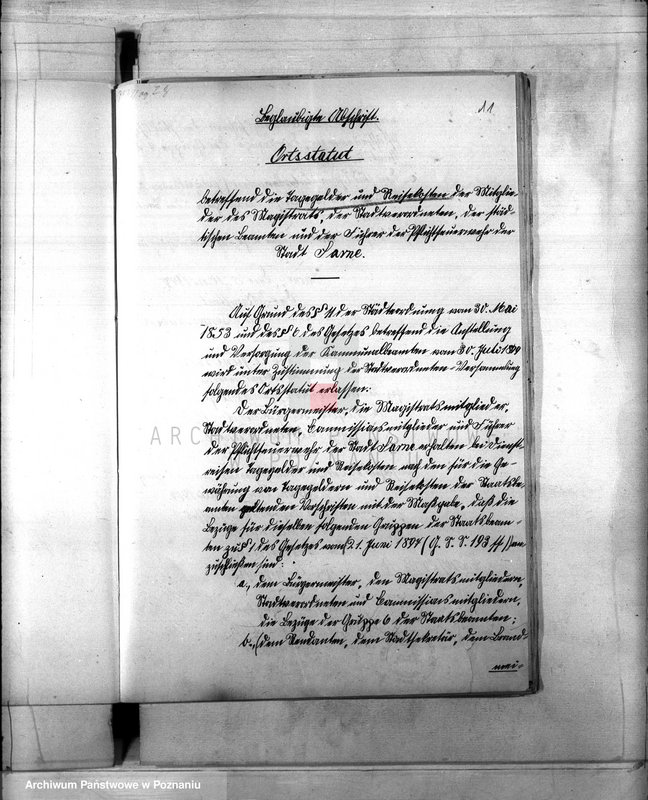 11
Beglaubigte Abschrift.
Ortsstatut
betreffend die Tagegelder und Reisekosten der Mitglie-
der des Magistrats, der Stadtverordneten, der städ-
tischen Beamten und der Führer der Pflichtfeuerwehr der
Stadt Sarne.
Auf Grund des § 11 der Städteordnung vom 30. Mai
1853 und des § 6 des Gesetzes betreffend die Anstellung
und Versorgung der Kommunalbeamten vom 30. Juli 1899
wird unter Zustimmung der Stadtverordneten-Versammlung
folgendes Ortsstatut erlassen:
Der Bürgermeister, die Magistratsmitglieder,
Stadtverordneten, Commissionsmitglieder und Führer
der Pflichtfeuerwehr der Stadt Sarne erhalten bei Dienst-
reisen Tagegelder und Reisekosten nach den für die Ge-
währung von Tagegeldern und Reisekosten der Staatsbe-
amten geltenden Vorschriften mit der Maßgabe, daß die
Bezüge für dieselben folgenden Gruppen der Staatsbeam-
ten zu § 1 des Gesetzes vom 21. Juni 1897 (G. S. S. 193 ff) an
zuschließen sind:
a., dem Bürgermeister, den Magistratsmitgliedern,
Stadtverordneten und Commissionsmitgliedern,
die Bezüge der Gruppe 6 der Staatsbeamten;
b., (dem Rendanten, dem Stadtsekretär, dem Brand-
mei-
ARCHIWUM
Archiwum Państwowe w Poznaniu